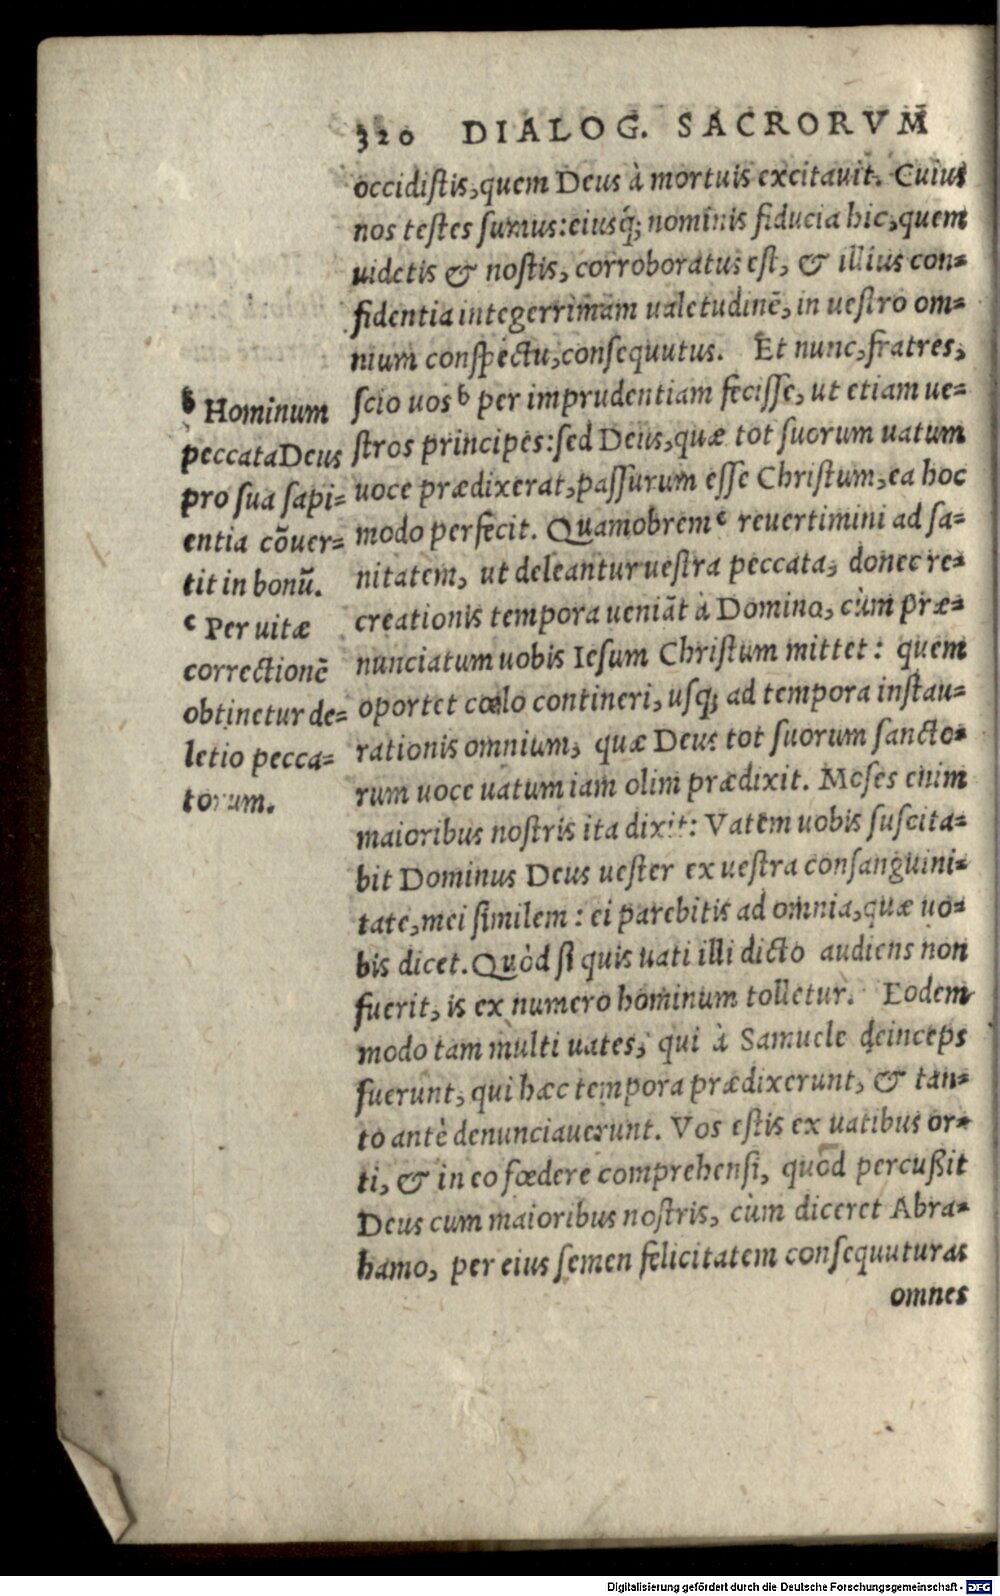 320 DIALOG. SACRORVM̃
occidistis, quem Deus à mortuis excitauit. Cuius
nos testes sumus: eiusq́; nominis fiducia hic, quem
uidetis & nostis, corroboratus est, & illius con=
fidentia integerrimam ualetudinẽ, in uestro om=
nium conspectu, consequutus. Et nunc, fratres,
scio uos ᵇ per imprudentiam fecisse, ut etiam ue=
stros principes: sed Deus, quæ tot suorum uatum
uoce prædixerat, passurum esse Christum, ea hoc
modo perfecit. Quamobrem ᶜ reuertimini ad sa=
nitatem, ut deleantur uestra peccata, donec re=
creationis tempora ueniãt à Domino, cùm præ=
nunciatum uobis Iesum Christum mittet: quem
oportet cœlo contineri, usq; ad tempora instau=
rationis omnium, quæ Deus tot suorum sancto=
rum uoce uatum iam olim prædixit. Moses enim
maioribus nostris ita dixit: Vatem uobis suscita=
bit Dominus Deus uester ex uestra consanguini=
tate, mei similem: ei parebitis ad omnia, quæ uo=
bis dicet. Quòd si quis uati illi dicto audiens non
fuerit, is ex numero hominum tolletur. Eodem
modo tam multi uates, qui à Samuele deinceps
fuerunt, qui hæc tempora prædixerunt, & tan=
to antè denunciauerunt. Vos estis ex uatibus or=
ti, & in eo fœdere comprehensi, quod percußit
Deus cum maioribus nostris, cùm diceret Abra=
hamo, per eius semen felicitatem consequuturas
omnes
ᵇ Hominum
peccata Deus
pro sua sapi=
entia cõuer=
tit in bonũ.
ᶜ Per uitæ
correctionẽ
obtinetur de=
letio pecca=
torum.
Digitalisierung gefördert durch die Deutsche Forschungsgemeinschaft - DFG